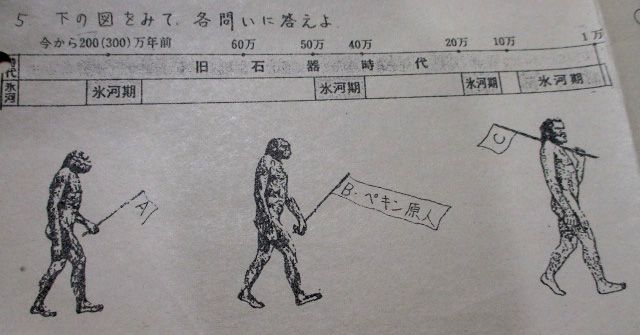 5 下の図をみて、各問いに答えよ
今から200(300)万年前 60万 50万 40万 20万 10万 1万
時代 旧石器時代
氷河 氷河期 氷河期 氷河期 氷河期
A
B・ペキン原人
C